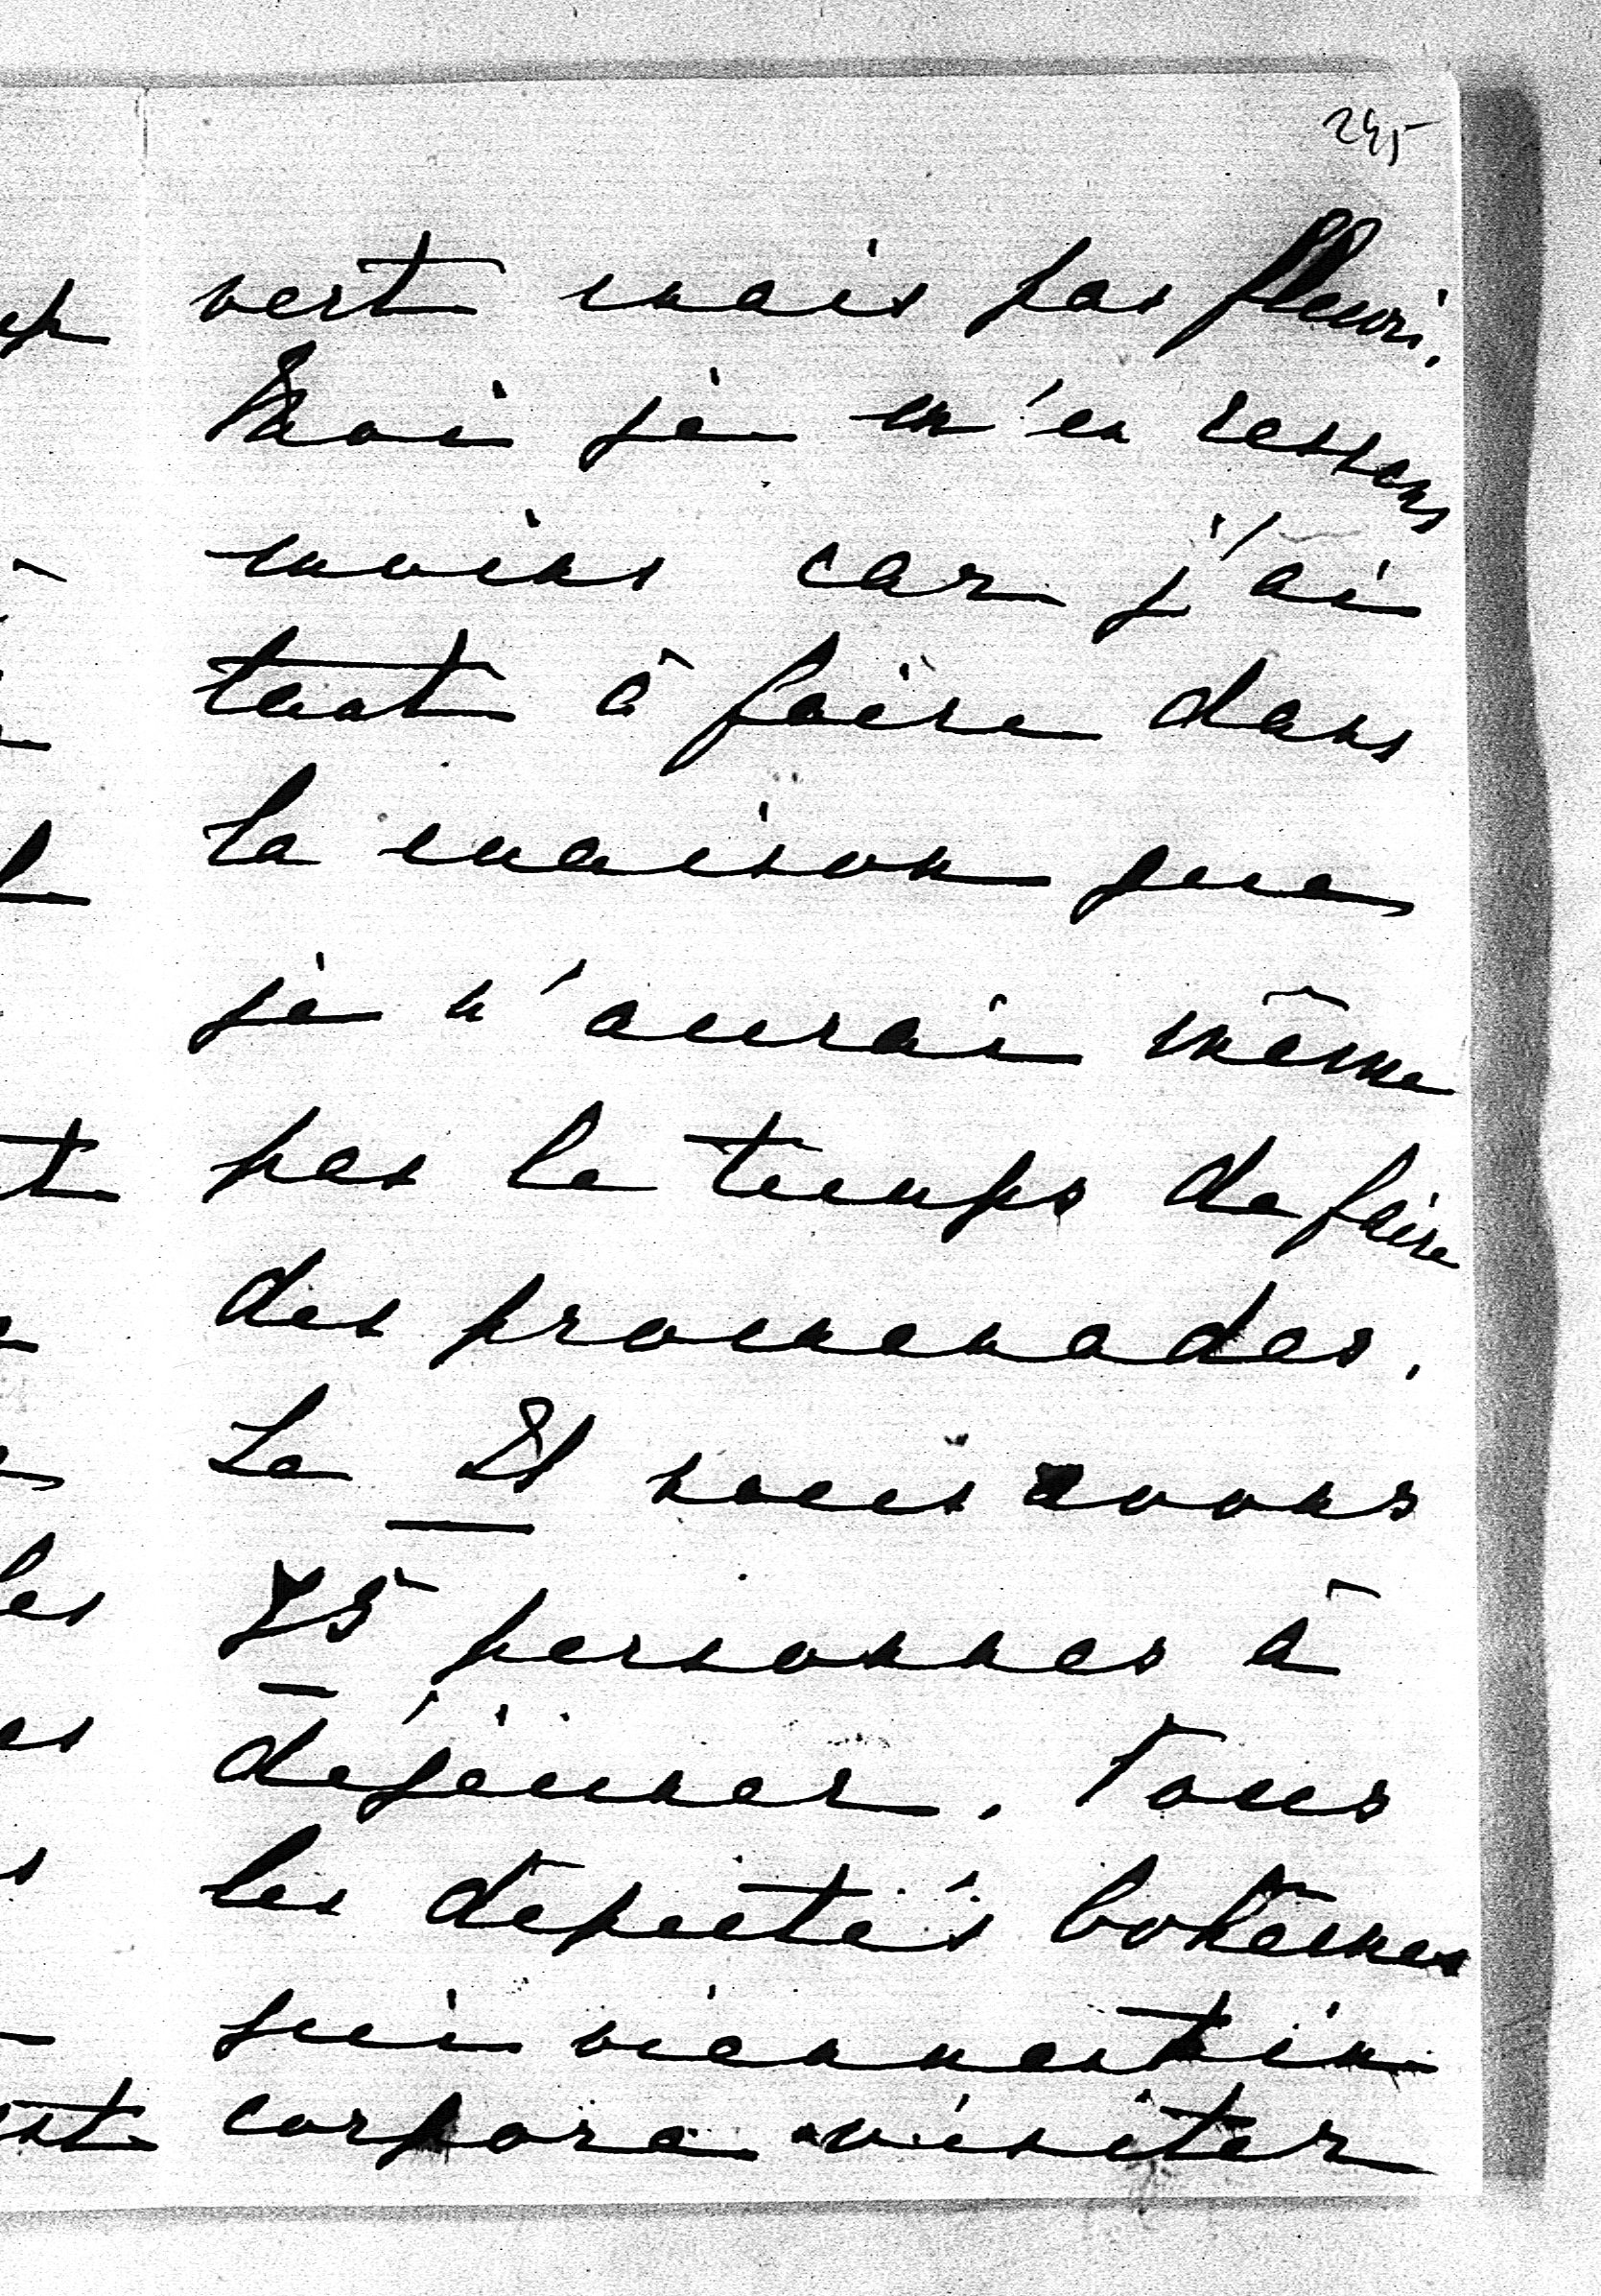 245
vert mais pas fleuri.
Moi je m'en ressens
moins car j'ai
tant à faire dans
la maison que
je n'aurai même
pas le temps de faire
des promenades.
Le 21 nous avons
75 personnes à
déjeuner. Tous
les députés bohèmes
qui viennent in
corpore visiter